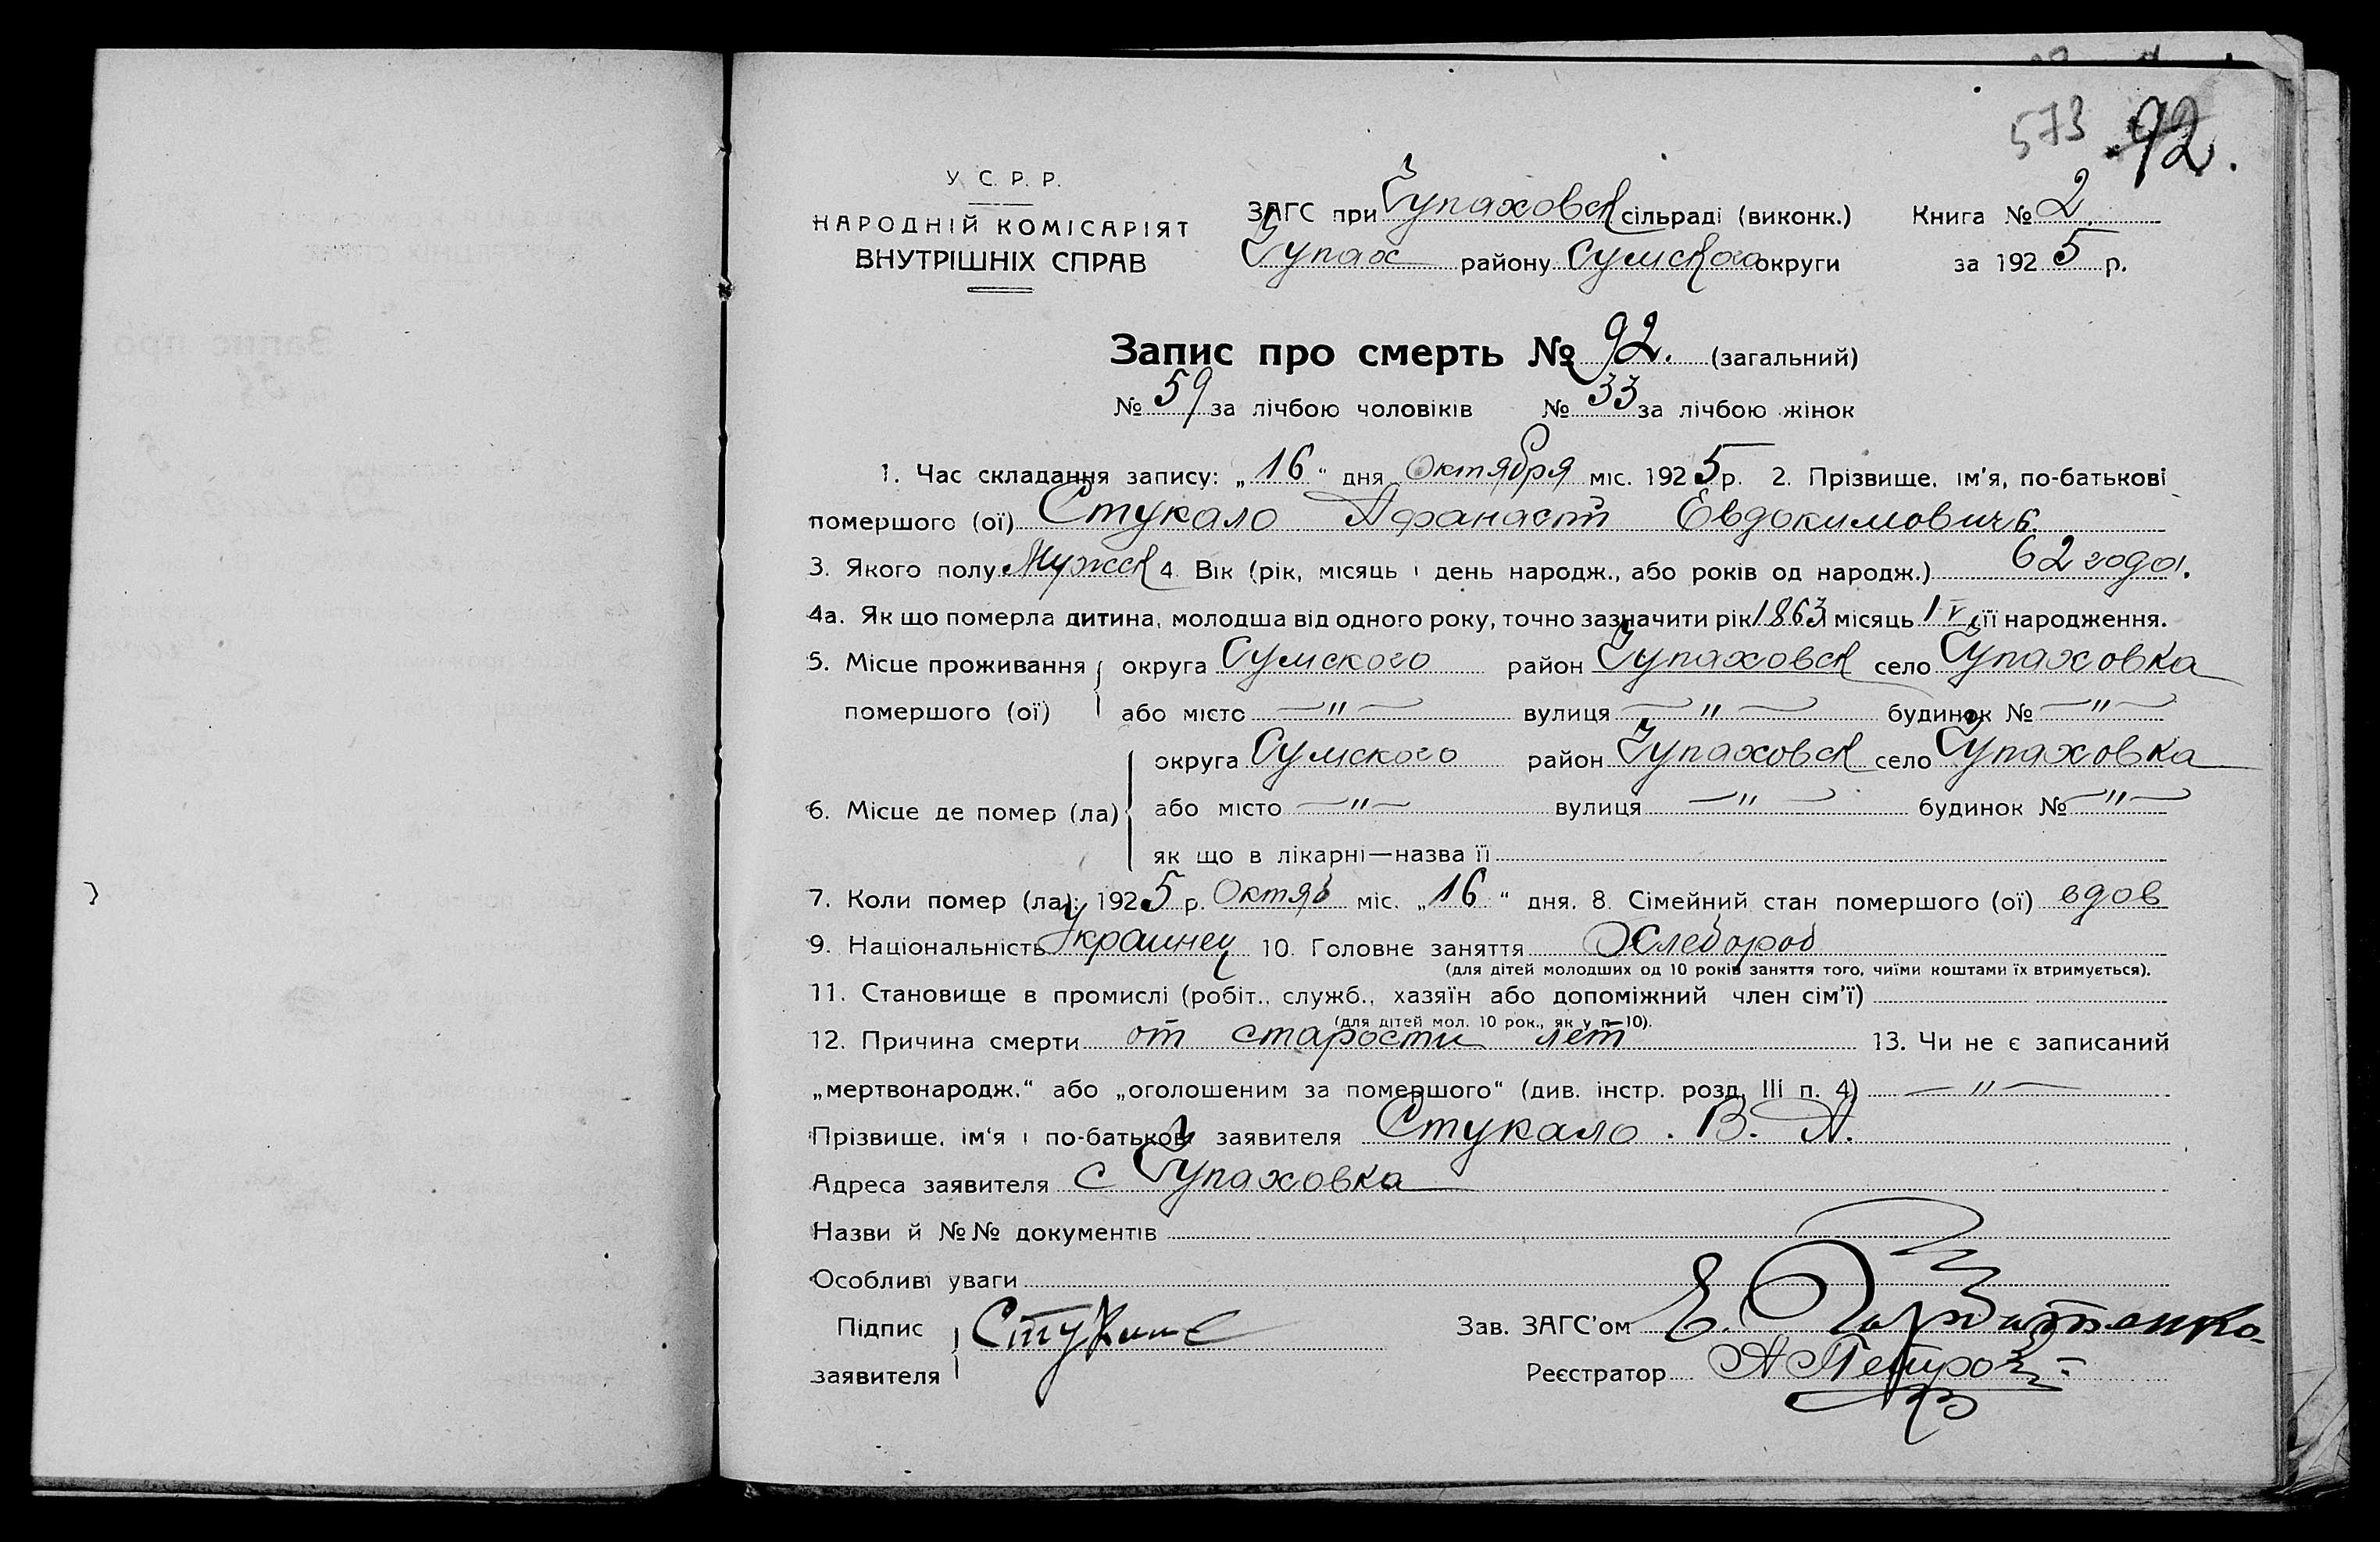 573 92.
У. С. Р. Р.
НАРОДНІЙ КОМІСАРІЯТ
ВНУТРІШНІХ СПРАВ
ЗАГС при Чупаховск сільраді (виконк.)
Чупах району Сумского округи
Книга № 2
за 1925 р.
Запис про смерть № 92. (загальний)
№ 59 за лічбою чоловіків № 33 за лічбою жінок
1. Час складання запису: „16“ дня Октября міс. 1925 р. 2. Прізвище, ім'я, по-батькові
помершого (ої) Стукало Афанасій Евдокимовичъ
3. Якого полу Мужск 4. Вік (рік, місяць і день народж., або років од народж.) 62 года.
4а. Як що померла дитина, молодша від одного року, точно зазначити рік 1863 місяць її народження.
5. Місце проживання округа Сумского район Чупаховск село Чупаховка
помершого (ої) або місто —"— вулиця —"— будинок № —"—
округа Сумского район Чупаховск село Чупаховка
6. Місце де помер (ла) або місто —"— вулиця —"— будинок № —"—
як що в лікарні—назва її
7. Коли помер (ла): 1925 р. Октяб міс. „16“ дня. 8. Сімейний стан помершого (ої) вдов
9. Національність Украинец 10. Головне заняття Хлебороб
(для дітей молодших од 10 років заняття того, чиїми коштами їх втримується).
11. Становище в промислі (робіт., служб., хазяїн або допоміжний член сім'ї)
(для дітей мол. 10 рок., як у п. 10).
12. Причина смерти от старости лет 13. Чи не є записаний
„мертвонародж.“ або „оголошеним за помершого“ (див. інстр. розд. III п. 4) —"—
Прізвище, ім'я і по-батькові заявителя Стукало. В. А.
Адреса заявителя с Чупаховка
Назви й №№ документів
Особливі уваги
Підпис
заявителя
Зав. ЗАГС'ом Е.
Реєстратор А Петро